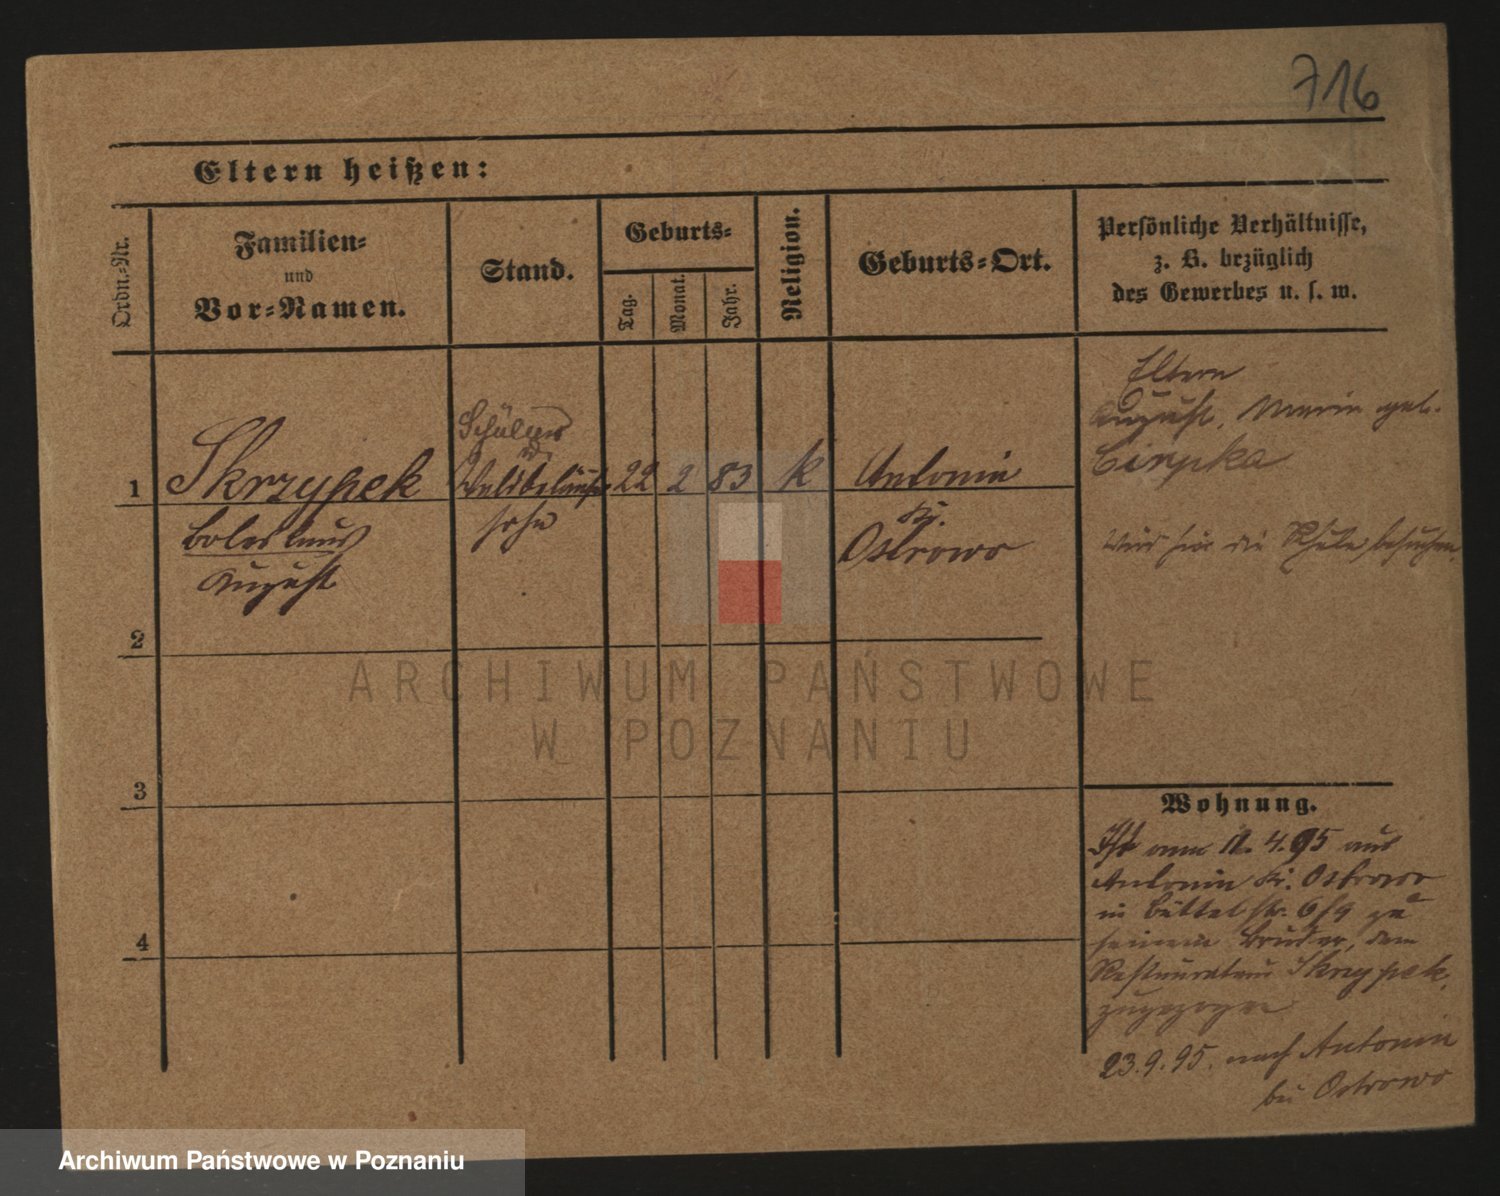 716
Eltern heißen:
Ordn.-Nr.
Familien-
und
Vor-Namen.
Stand.
Geburts-
Tag.
Monat.
Jahr.
Religion.
Geburts-Ort.
Persönliche Verhältnisse,
z. B. bezüglich
des Gewerbes u. s. w.
1
Skrzypek
Boleslaus
August
Schüler
sohn
22
2
83
k
Antonin
Kr.
Ostrowo
Eltern
August, Marie geb.
Cierpka
Wird hier die Schule besuchen.
2
3
4
Wohnung.
Ist am 11.4.95 aus
Antonin Kr. Ostrowo
in Büttelstr. 6/9 zu
seinem Bruder, dem
Restaurateur Skrzypek,
zugezogen
23.9.95. nach Antonin
bei Ostrowo
ARCHIWUM PAŃSTWOWE
W POZNANIU
Archiwum Państwowe w Poznaniu